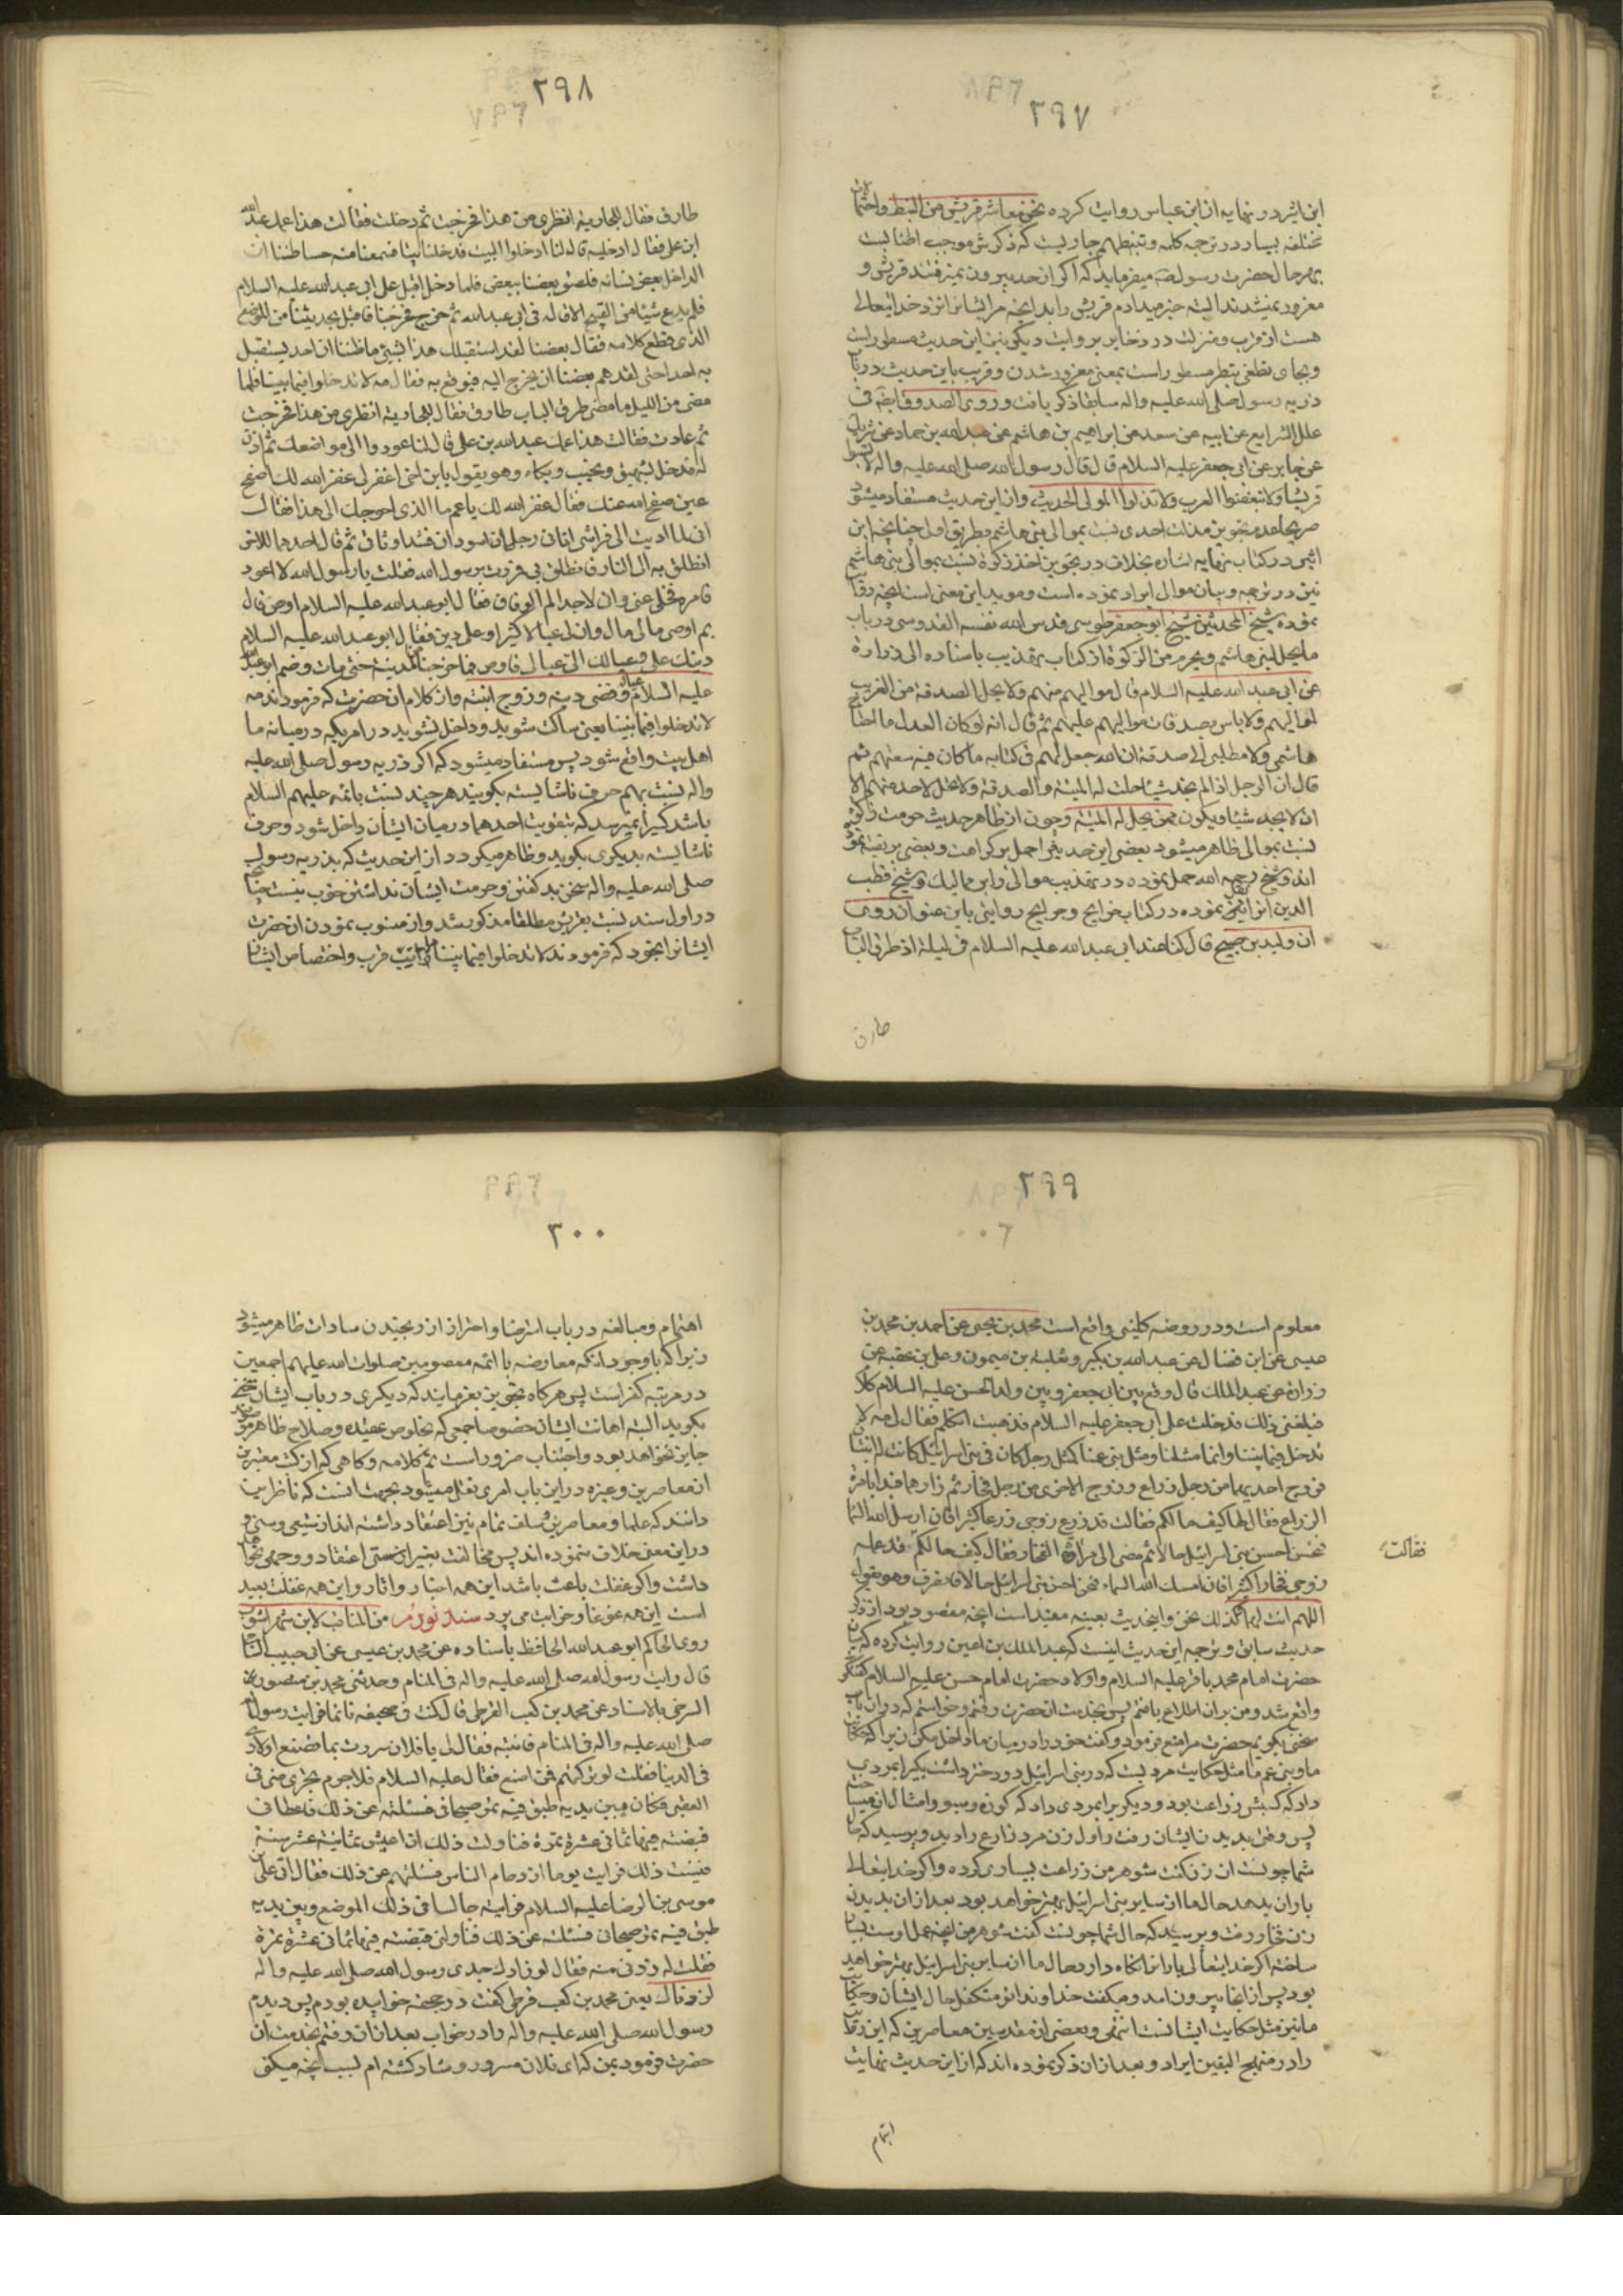 ٢٩٧
ابن اثیر در نهایه از ابن عباس روایت کرده نحن معاشر قریش من النبط و احتمالات
مختلفه بسیار در ترجمه کلمه و تنبطهم جاریست که ذکرش موجب اطنابست
بهرحال حضرت رسول صه میفرماید که اگر از حد بیرون نمیرفتند قریش و
مغرور نمیشدند البته خبر میدادم قریش را بدانچه مر ایشانرا نزد خدایتعالی
هست از قرب و منزلت و در ذخایر بروایت دیگر نیز این حدیث مسطور است
و بجای تطغی تبطر مسطور است بمعنی مغرور شدن و قریب باین حدیث در باب
ذریه رسول صلی الله علیه واله سابقا ذکر یافت و روی الصدوق ایضه فی
علل الشرایع عن ابیه عن سعد عن ابراهیم بن هاشم عن عبدالله بن حماد عن شریک
عن جابر عن ابی جعفر علیه السلام قال قال رسول الله صلی الله علیه واله لا تسبوا
قریشا ولا تبغضوا العرب ولا تذلوا الموالی الحدیث و از این حدیث مستفاد میشود
صریحا عدم تجویز مذلت احدی نسبت بموالی بنی هاشم بطریق اولی چنانچه ابن
اثیر در کتاب نهایه اشاره بخلاف در تجویز اخذ زکوة نسبت بموالی بنی هاشم
نیز در ترجمه و بیان موالی ایراد نموده است و موید این معنی است انچه روایت
نموده شیخ المحدثین شیخ ابوجعفر طوسی قدس الله نفسه القدوسی در باب
ما یحل لبنی هاشم و یحرم من الزکوة از کتاب تهذیب باسناده الی زرارة
عن ابی عبد الله علیه السلام قال موالیهم منهم ولا یحل الصدقة من الغریب
لموالیهم ولا باس بصدقات موالیهم علیهم ثم قال انه لو کان العدل ما احتاج
هاشمی ولا مطلبی الی صدقة ان الله جعل لهم فی کتابه ما کان فیه سعتهم ثم
قال ان الرجل اذا لم یجد شیئا حلت له المیتة والصدقة ولا تحل لاحد منهم الا
ان لا یجد شیئا و یکون ممن یحل له المیتة و چون از ظاهر حدیث حرمت زکوة
نسبت بموالی ظاهر میشود بعضی این حدیث را حمل بر کراهت و بعضی بر تقیه نموده
اند و شیخ رحمه الله حمل نموده در تهذیب موالی را بر ممالیک و شیخ قطب
الدین الراوندی نموده در کتاب خرایج و جرایح روایتی باین عنوان روی
ان ولید بن صبیح قال کنا عند ابی عبد الله علیه السلام فی لیلة اذ طرق الباب
طارق
٢٩٨
طارق فقال للجاریة انظری من هذا فخرجت ثم دخلت فقالت هذا عمک عبدالله
ابن علی فقال ادخلیه قال لنا ادخلوا البیت فدخلنا بیتا فسمعنا منه حسا ظننا ان
الداخل بعض نسائه فلصق بعضنا ببعض فلما دخل اقبل علی ابی عبد الله علیه السلام
فلم یدع شیئا من القبیح الا قاله فی ابی عبد الله ثم خرج و خرجنا فاقبل یحدثنا من الموضع
الذی قطع کلامه فقال بعضنا لقد استقبلک هذا بشیئ ما ظننا ان احد یستقبل
به احدا حتی لقد هم بعضنا ان یخرج الیه فیوقع به فقال مه لا تدخلوا فیما بیننا فلما
مضی من اللیل ما مضی طرق الباب طارق فقال للجاریة انظری من هذا فخرجت
ثم عادت فقالت هذا عمک عبدالله بن علی قال لنا عودوا الی مواضعکم ثم اذن
له فدخل بشهیق و نحیب و بکاء وهو یقول یابن اخی اغفر لی غفر الله لک اصفح
عنی صفح الله عنک فقال غفر الله لک یا عم ما الذی احوجک الی هذا فقال
انی لما اویت الی فراشی اتانی رجلان اسودان فشدا وثاقی ثم قال احدهما للاخر
انطلق به الی النار فانطلق بی فمررت برسول الله فقلت یا رسول الله لا اعود
فامره فخلی عنی و انی لاجد الم الوثاق فقال ابوعبدالله علیه السلام اوص قال
بم اوصی مالی مال وان لی عیالا کثیرا و علی دین فقال ابو عبدالله علیه السلام
دینک علی و عیالک الی عیالی فاوص فما خرجنا من المدینة حتی مات و ضم ابوعبدالله
علیه السلام عیاله و قضی دینه و زوج ابنته و از کلام ان حضرت که فرمودند مه
لا تدخلوا فیما بیننا یعنی ساکت شوید و داخل نشوید در امریکه در میانه ما
اهل بیت واقع شود پس مستفاد میشود که اگر ذریه رسول صلی الله علیه
واله نسبت بهم حرف ناشایسته بگویند هر چند نسبت بائمه علیهم السلام
باشد کسیرا نمیرسد که بتقویت احدهما در میان ایشان داخل شود و حرف
ناشایسته بدیگری بگوید و ظاهر میگردد از این حدیث که بذریه رسول
صلی الله علیه واله سخن بد گفتن و حرمت ایشان نداشتن خوب نیست چنانچه
در اول سند نسبت بقریش مطلقا مذکور شد و از منسوب نمودن ان حضرت
ایشانرا بخود که فرمودند لا تدخلوا فیما بیننا مراتب قرب و اختصاص ایشان
٢٩٩
معلوم است و در روضه کلینی واقع است محمد بن یحیی عن احمد بن محمد بن
عیسی عن ابن فضال عن عبدالله بن بکیر و ثعلبة بن میمون و علی بن عقبه عن
زراره عن عبد الملک قال وقع بین ابی جعفر و بین ولد الحسن علیه السلام کلام
فبلغنی ذلک فدخلت علی ابی جعفر علیه السلام فذهبت اتکلم فقال لی مه لا
تدخل فیما بیننا و انما مثلنا و مثل بنی عمنا کمثل رجل کان فی بنی اسرائیل کانت له ابنتان
فزوج احدیهما من رجل زراع و زوج الاخری من رجل فخار ثم زارهما فبدا بامرة
الزراع فقال لها کیف حالکم فقالت قد زرع زوجی زرعا کثیرا فان ارسل الله السماء
فنحن احسن بنی اسرائیل حالا ثم مضی الی امراة الفخار فقال کیف حالکم قد عمل
فقالت
زوجی فخارا کثیرا فان امسک الله السماء فنحن احسن بنی اسرائیل حالا فانصرف وهو یقول
اللهم انت لهما و کذلک نحن و اینحدیث بعینه مفید است انچه مقصود بود از ذکر
حدیث سابق و ترجمه این حدیث اینست که عبدالملک بن اعین روایت کرده که میان
حضرت امام محمد باقر علیه السلام و اولاد حضرت امام حسن علیه السلام گفتگو
واقع شد و من بر ان اطلاع یافتم پس بخدمت ان حضرت رفتم و خواستم که در ان باب
سخنی بگویم حضرت مرا منع فرمود و گفت خود را در میان ما داخل مکن زیرا که حکایت
ما و بنی عم ما مثل حکایت مردیست که در بنی اسرائیل دو دختر داشت یکیرا بمردی
داد که کسبش زراعت بود و دیگریرا بمردی داد که کوزه و سبو و امثال ان میساخت
پس وقتی بدیدن ایشان رفت و اول زن مرد زارع را دید و پرسید که حال
شما چونست ان زن گفت شوهر من زراعت بسیاری کرده و اگر خدایتعالی
باران بدهد حال ما از سایر بنی اسرائیل بهتر خواهد بود بعد از ان بدیدن
زن فخار رفت و پرسید که حال شما چونست گفت شوهر من انچه عمل اوست بسیار
ساخته اگر خدایتعالی بارانرا نگاه دارد حال ما از سایر بنی اسرائیل بهتر خواهد
بود پس از انجا بیرون امد و میگفت خداوندا تو متکفل حال ایشان و حکایت
ما نیز مثل حکایت ایشانست انتهی و بعضی از مقدسین معاصرین که این روایت
را در منهج الیقین ایراد و بعد از ان ذکر نموده اند که از این حدیث نهایت
اهتمام
٣٠٠
اهتمام و مبالغه در باب استرضا و احتراز از رنجیدن سادات ظاهر میشود
زیرا که با وجود انکه معارضه با ائمه معصومین صلوات الله علیهم اجمعین
در مرتبه کفر است پس هرگاه تجویز نفرمایند که دیگری در باب ایشان سخنی
بگوید البته اهانت ایشان خصوصا جمعی که بخلوص عقیده و صلاح ظاهر موصوفند
جایز نخواهد بود و اجتناب ضرور است تم کلامه و گاهی که از کتب معتبره
از معاصرین و غیره در این باب امری نقل میشود بجهت انست که ناظر بیت
دانند که علما و معاصرین و سلف تمام نیز اعتقاد داشته اند از شیعی و سنی و
در این معنی خلاف ننموده اند پس مخالفت بغیر از سستی اعتقاد وجهی نخواهد
داشت و اگر غفلت باعث باشد این همه اخبار و اثار و این همه غفلت بعید
است این همه غوغا و خوابت می برد سند نوزدهم من المناقب لابن شهراشوب
روی الحاکم ابو عبدالله الحافظ باسناده عن محمد بن عیسی عن ابی حبیب النباجی
قال رایت رسول الله صلی الله علیه واله فی المنام و حدثنی محمد بن منصور
السرخی بالاسناد عن محمد بن کعب القرظی قال کنت فی جحفه نائما فرایت رسول الله
صلی الله علیه واله فی المنام فاتیته فقال لی یا فلان سررت بما تصنع اولادی
فی الدنیا فقلت لو ترکتهم فبمن اصنع فقال علیه السلام فلاجرم تجزی منی فی
العقبی فکان بین یدیه طبق فیه تمر صیحانی فسئلته عن ذلک فاعطانی
قبضته فیها ثمانی عشرة تمرة فتاولت ذلک ان اعیش ثمانیة عشر سنة
فنسیت ذلک فرایت یوما ازدحام الناس فسئلتهم عن ذلک فقالوا اتی علی بن
موسی بن الرضا علیه السلام فرایته جالسا فی ذلک الموضع و بین یدیه
طبق فیه تمر صیحانی فسئلته عن ذلک فناولنی قبضته فیها ثمانی عشرة تمرة
فقلت له زدنی منه فقال لو زادک جدی رسول الله صلی الله علیه واله
لزدناک یعنی محمد بن کعب قرظی گفت در جحفه خوابیده بودم پس دیدم
رسول الله صلی الله علیه واله را در خواب بعد از ان رفتم بخدمت ان
حضرت فرمود بمن که ای فلان مسرور و شاد گشته ام بسبب انچه میکنی